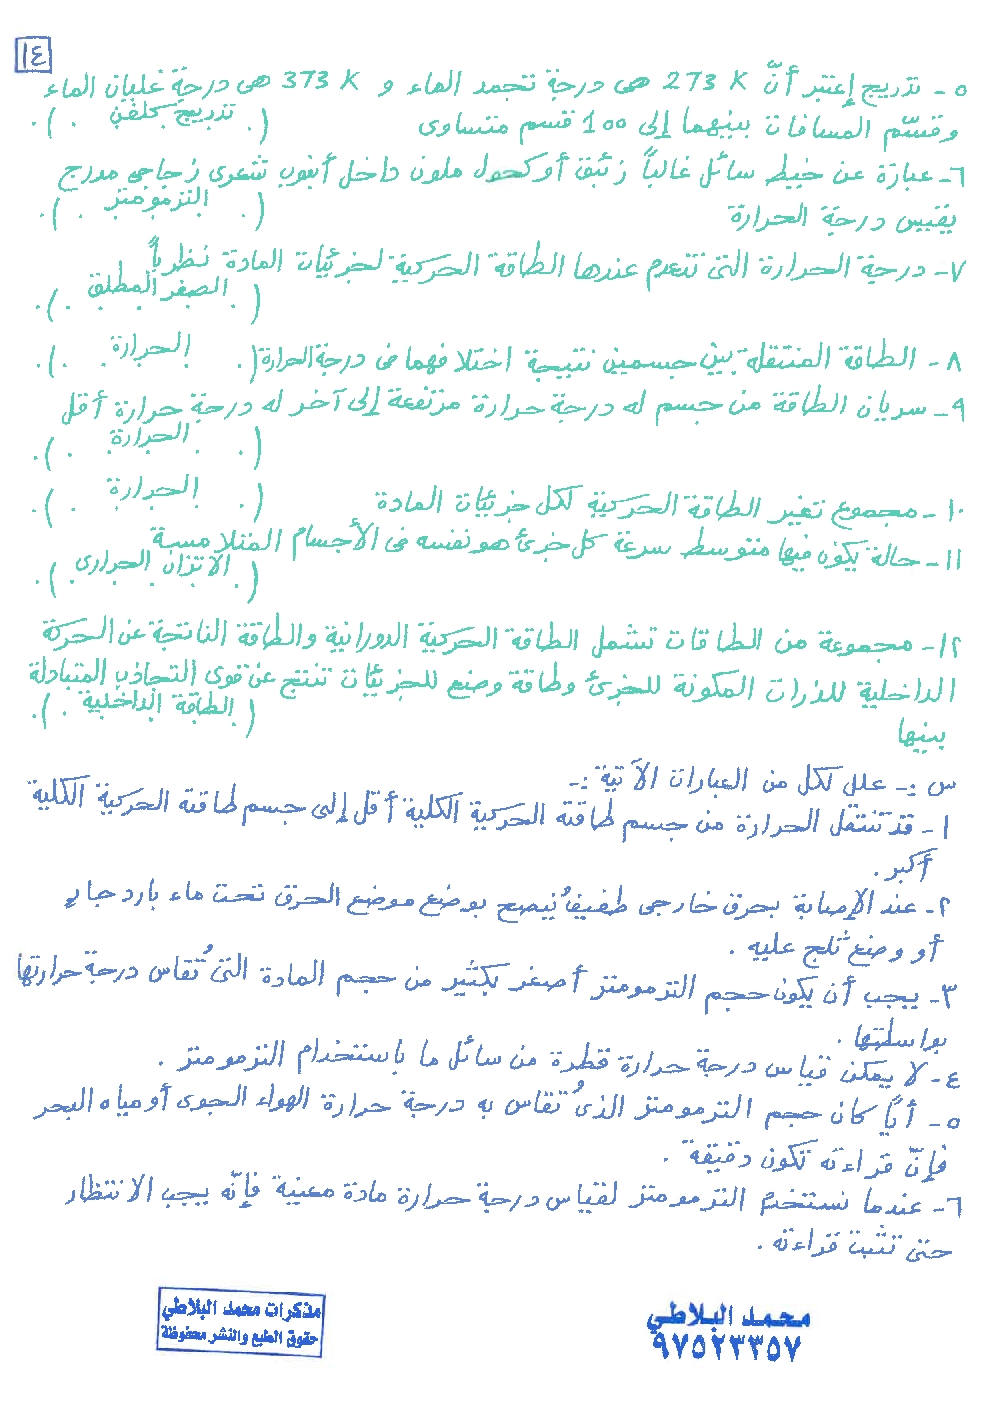 ١٤
٥- تدريج إعتبر أنّ 273 K هى درجة تجمد الماء و 373 K هى درجة غليان الماء
وقسّم المسافات بينهما إلى 100 قسم متساوى ( . تدريج كلفن . ) .
٦- عبارة عن خيط سائل غالباً زئبق أو كحول ملون داخل أنبوب شعرى زجاجى مدرج
يقيس درجة الحرارة ( . الترمومتر . ) .
٧- درجة الحرارة التى تنعدم عندها الطاقة الحركية لجزئيات المادة نظرياً
( . الصفر المطلق . ) .
٨- الطاقة المنتقلة بين جسمين نتيجة اختلافهما فى درجة الحرارة ( . الحرارة . ) .
٩- سريان الطاقة من جسم له درجة حرارة مرتفعة إلى آخر له درجة حرارة أقل
( . الحرارة . ) .
١٠- مجموع تغير الطاقة الحركية لكل جزئيات المادة ( . الحرارة . ) .
١١- حالة يكون فيها متوسط سرعة كل جزئ هو نفسه فى الأجسام المتلامسة
( . الاتزان الحرارى . ) .
١٢- مجموعة من الطاقات تشمل الطاقة الحركية الدورانية والطاقة الناتجة عن الحركة
الداخلية للذرات المكونة للجزئ وطاقة وضع للجزئيات تنتج عن قوى التجاذب المتبادلة
بينها ( الطاقة الداخلية . ) .
س :- علل لكل من العبارات الآتية :-
١- قد تنتقل الحرارة من جسم طاقته الحركية الكلية أقل إلى جسم طاقته الحركية الكلية
أكبر .
٢- عند الإصابة بحرق خارجى طفيف يُنصح بوضع موضع الحرق تحت ماء بارد جارٍ
أو وضع ثلج عليه .
٣- يجب أن يكون حجم الترمومتر أصغر بكثير من حجم المادة التى تُقاس درجة حرارتها
بواسطتها .
٤- لا يمكن قياس درجة حرارة قطرة من سائل ما باستخدام الترمومتر .
٥- أيّاً كان حجم الترمومتر الذى تُقاس به درجة حرارة الهواء الجوى أو مياه البحر
فإنّ قراءته تكون دقيقة .
٦- عندما نستخدم الترمومتر لقياس درجة حرارة مادة معينة فإنّه يجب الانتظار
حتى تثبت قراءته .
محمد البلاطي
٩٧٥٢٣٣٥٧
مذكرات محمد البلاطي
حقوق الطبع والنشر محفوظة